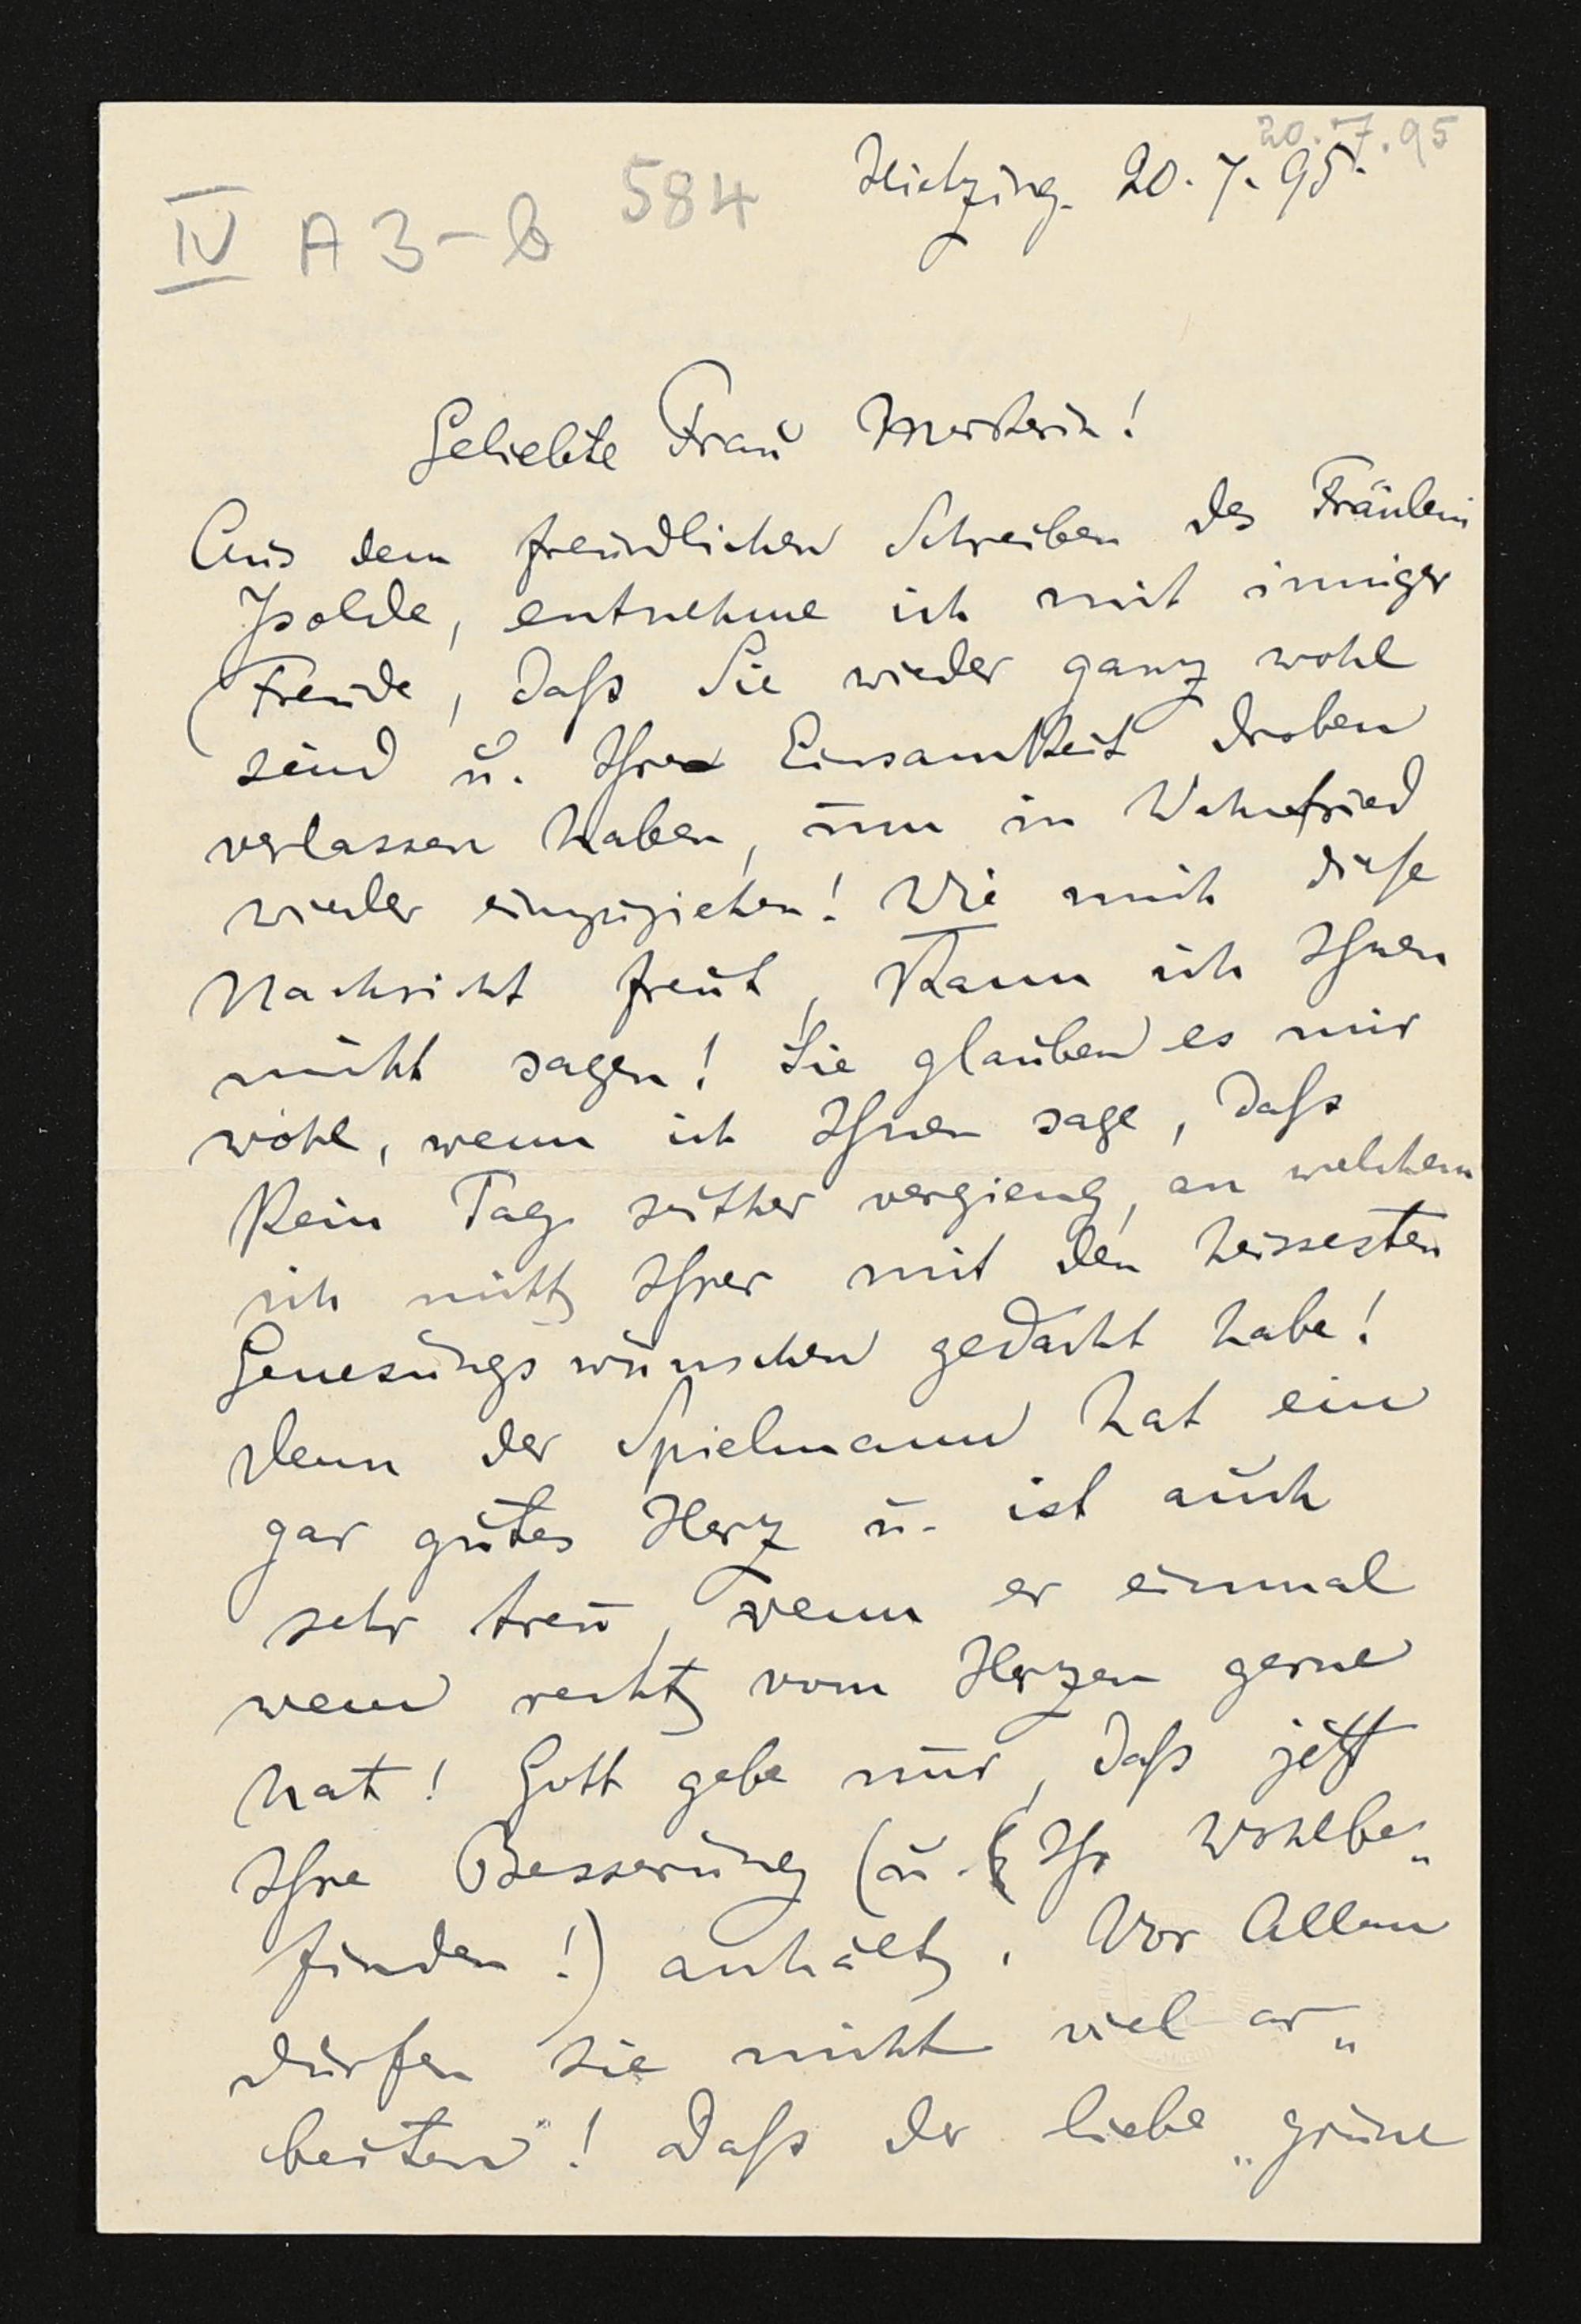 20.7.95
IV A 3-b 584 Hietzing. 20.7.95.
Geliebte Frau Meisterin!
Aus dem freundlichen Schreiben des Fräulein
Isolde, entnehme ich mit inniger
Freude, daſs Sie wieder ganz wohl
sind u. Ihre Einsamkeit droben
verlassen haben, um in Wahnfried
wieder einzuziehen! Wie mich dieſe
Nachricht freut, kann ich Ihnen
nicht sagen! Sie glauben es mir
wohl, wenn ich Ihnen sage, daſs
kein Tag seither vergieng, an welchem
ich nicht Ihrer mit den heissesten
Genesungswünschen gedacht habe!
Denn der Spielmann hat ein
gar gutes Herz u. ist auch
sehr treu, wenn er einmal
wem recht vom Herzen gerne
hat! Gott gebe nur, daſs jetzt
Ihre Besserung (u. Ihr Wohlbe„
finden!) anhält. Vor Allem
dürfen Sie nicht viel ar„
beiten! Daſs der liebe „grüne